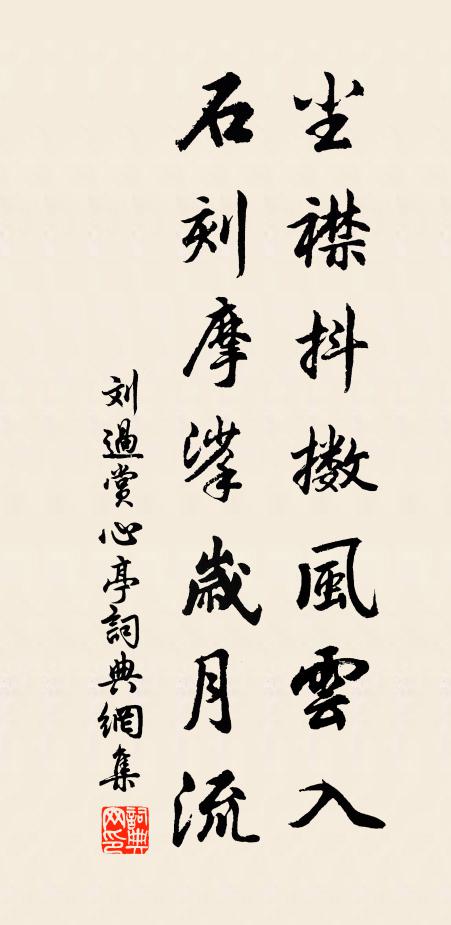 尘襟抖擻風雲入
石刻摩挲歲月流
刘過賞心亭詞典網集
詞典网印